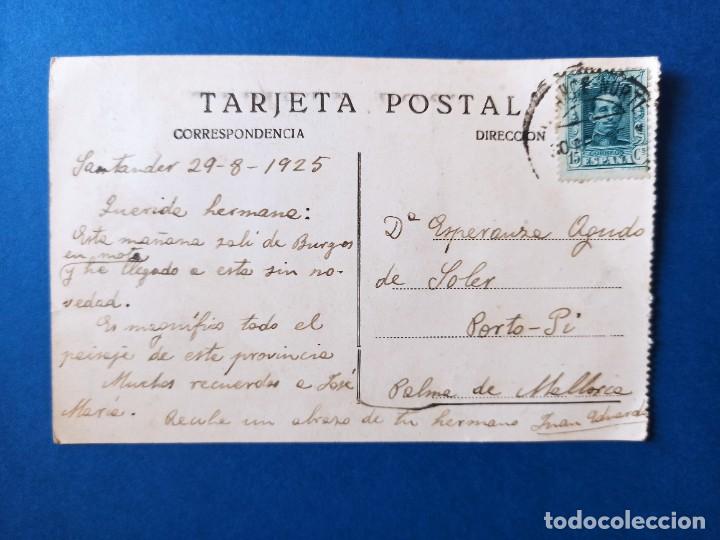 TARJETA POSTAL
CORRESPONDENCIA
DIRECCIÓN
15 Cs
ESPAÑA
Santander 29-8-1925
Querida hermana:
Esta mañana salí de Burgos
en moto
y he llegado a esta sin no-
vedad.
Es magnífico todo el
paisaje de esta provincia
Muchos recuerdos a José
María. Recibe un abrazo de tu hermano Juan Eduardo
Dª Esperanza Agudo
de Soler
Porto-Pi
Palma de Mallorca
todocoleccion.net